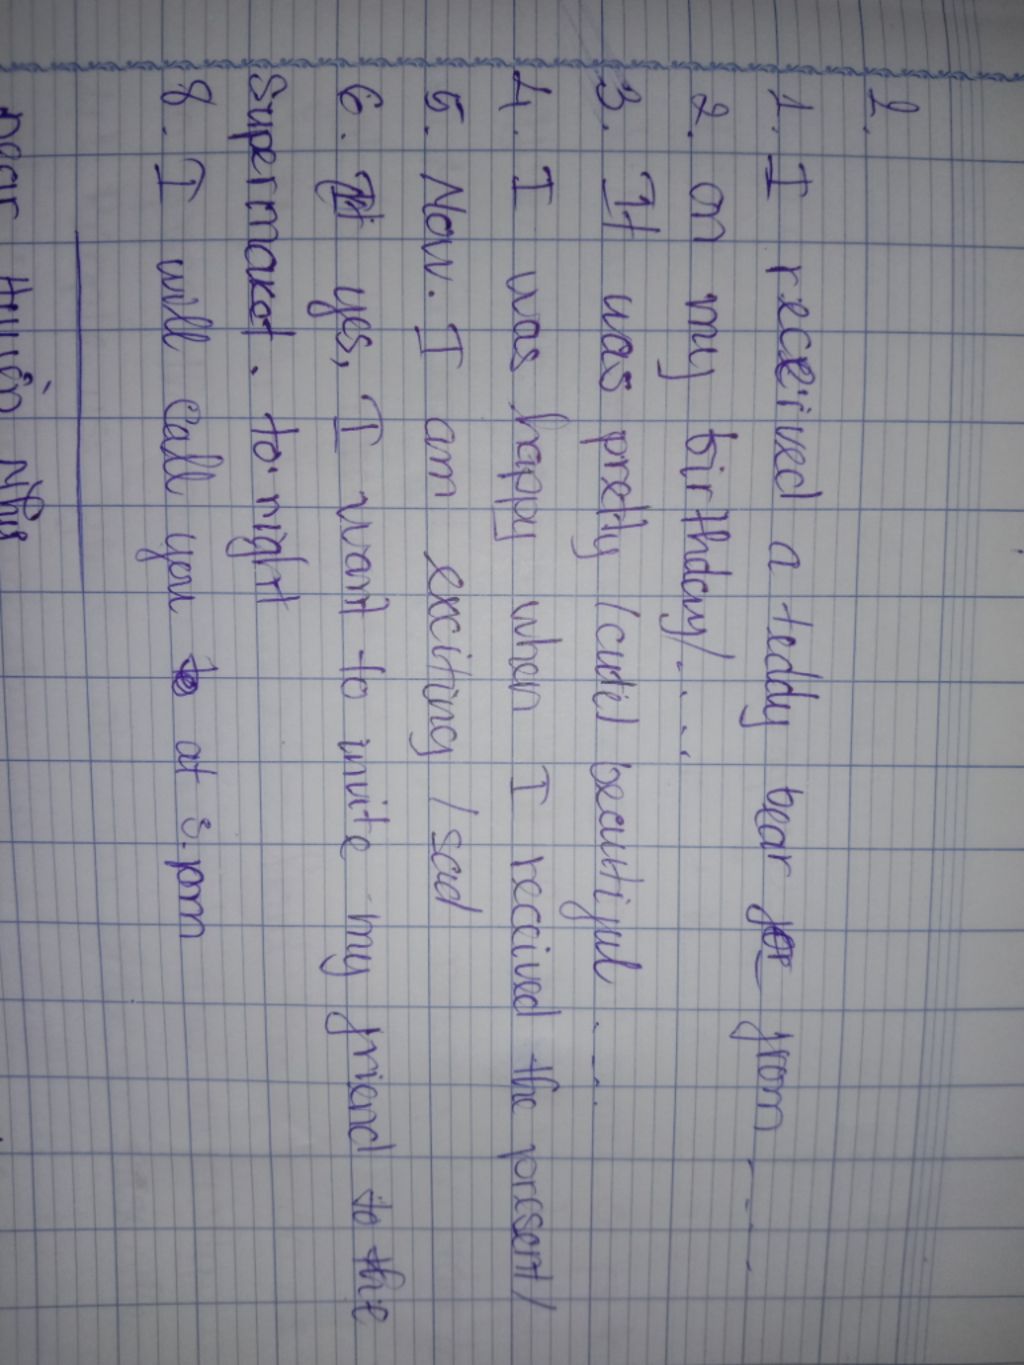 2.
1. I received a teddy bear from ....
2. on my birthday/....
3. It was pretty /cute/ beautiful ....
4. I was happy when I received the present/
5. Now. I am exciting / sad
6. yes, I want to invite my friend to the
Supermaket. to night
8. I will call you at 3.pm
Dear Huỳn Như